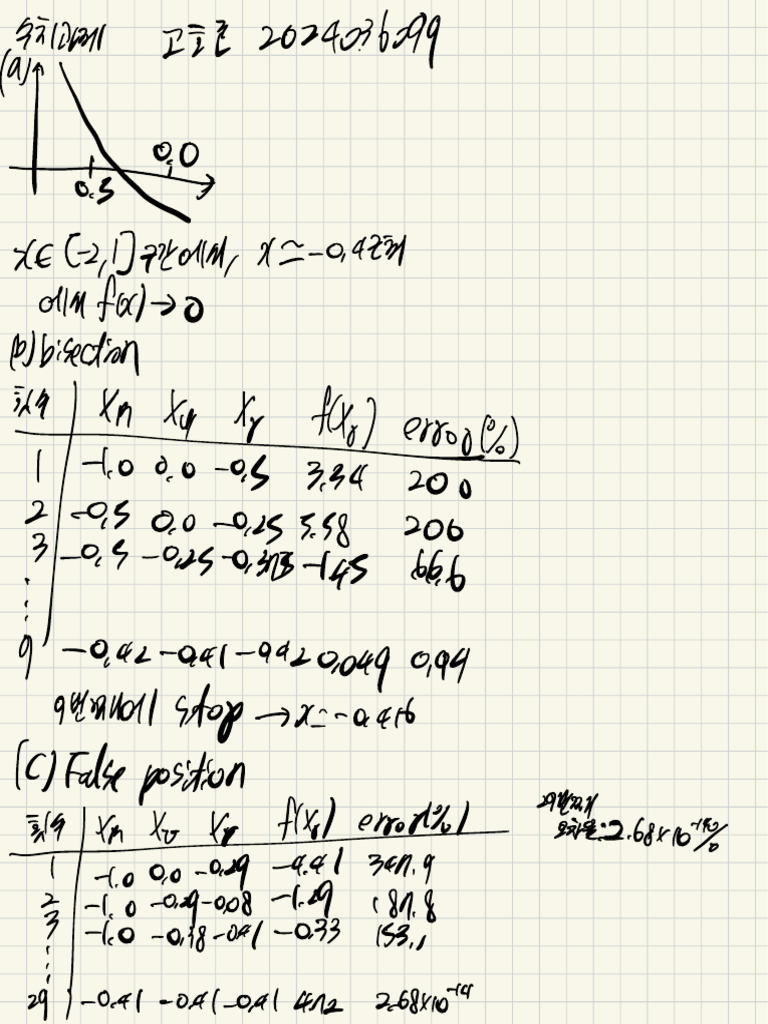 수치과제 고호근 2024036099
(a)
0.0
0.5
x∈[-2,1] 구간에서, x≃-0.42근처
에서 f(x)→0
(b) bisection
횟수 Xn Xu Xr f(Xr) error(%)
1 -1.0 0.0 -0.5 3.34 200
2 -0.5 0.0 -0.25 5.58 200
3 -0.5 -0.25 -0.375 -1.45 66.6
⋮
9 -0.42 -0.41 -0.42 0.049 0.94
9번째에 stop → x≃-0.416
(C) False position
횟수 Xn Xu Xr f(Xr) error(%)
29번까지
오차율: 2.68×10⁻¹⁴%
1 -1.0 0.0 -0.29 -4.41 347.9
2 -1.0 -0.29 -0.08 -1.29 187.8
3 -1.0 -0.38 -0.41 -0.33 153.1
⋮
29 -0.41 -0.41 -0.41 2.68×10⁻¹⁴